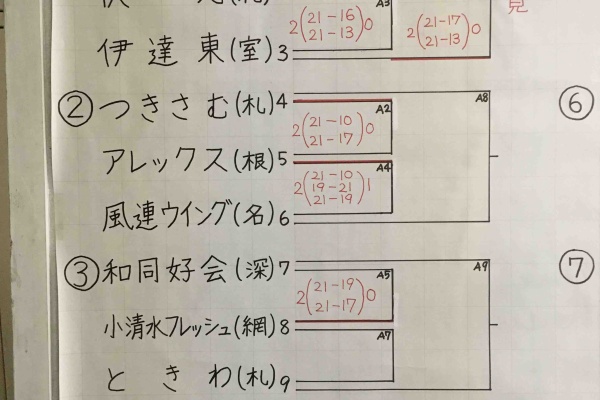 A3
2(21-16 21-13)0
2(21-17 21-13)0
伊達東(室)3
②つきさむ(札)4
A2
A8
⑥
2(21-10 21-17)0
アレックス(根)5
A4
2(21-10 19-21 21-19)1
風連ウイング(名)6
③和同好会(深)7
A5
A9
⑦
2(21-19 21-17)0
小清水フレッシュ(網)8
A7
ときわ(札)9